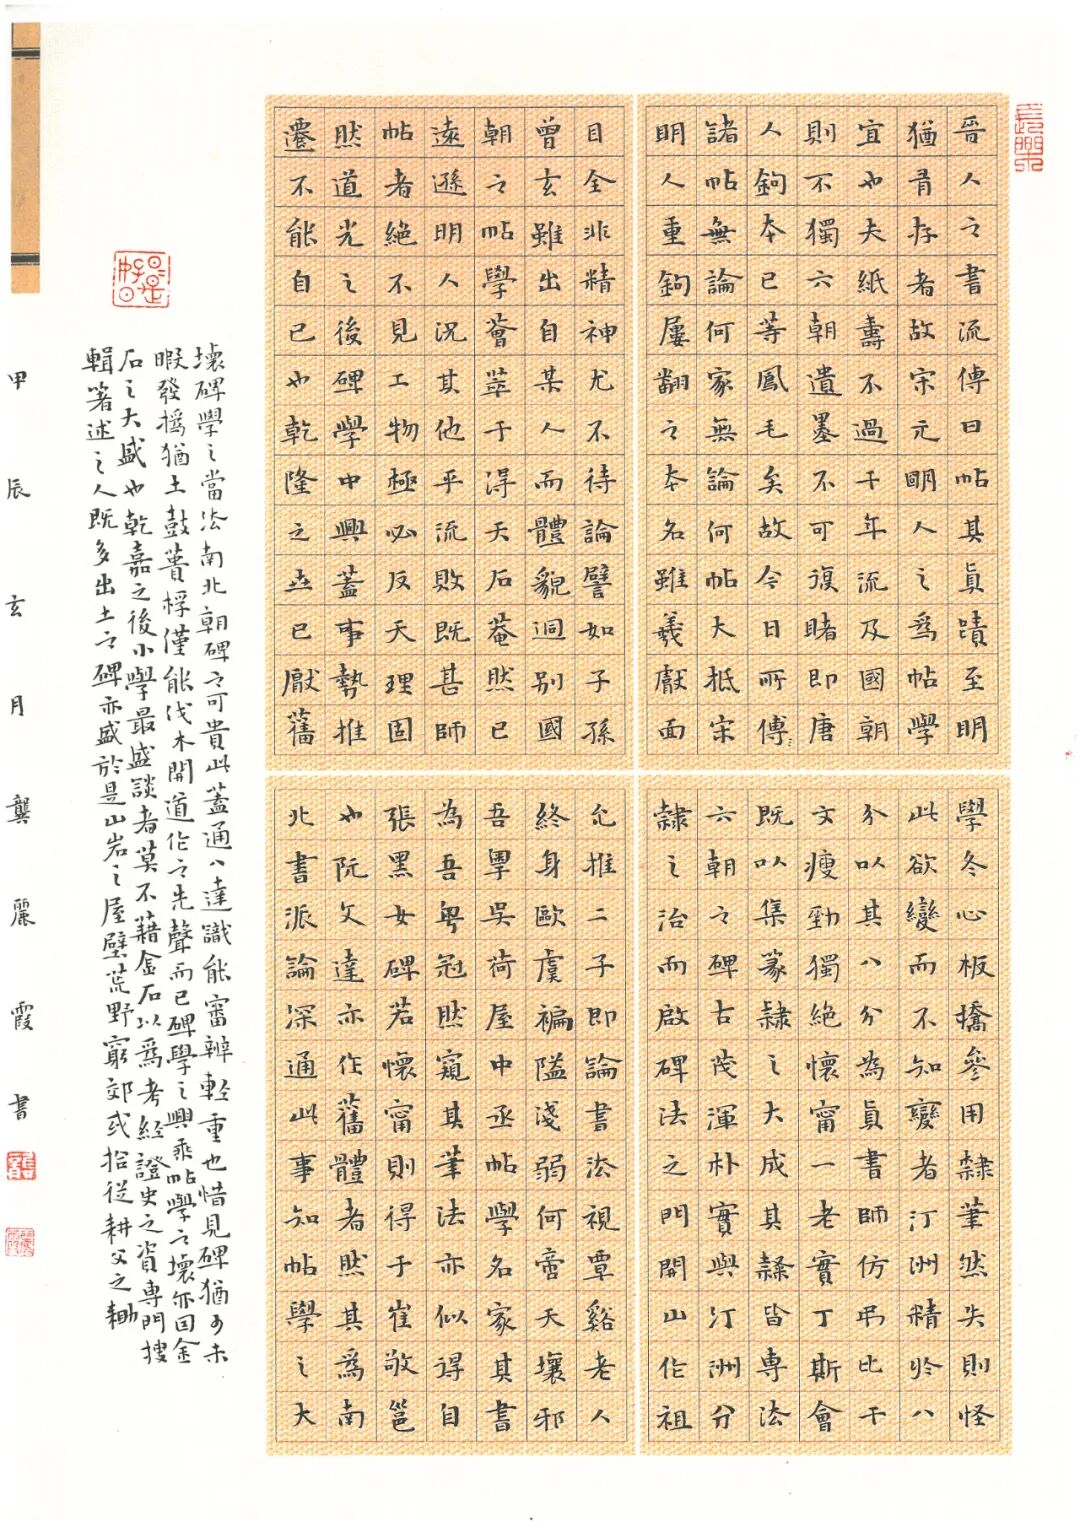 晉人之書流傳曰帖其眞蹟至明
猶有存者故宋元明人之爲帖學
宜也夫紙壽不過千年流及國朝
則不獨六朝遺墨不可復睹即唐
人鉤本已等鳳毛矣故今日所傳
諸帖無論何家無論何帖大抵宋
明人重鉤屢翻之本名雖羲獻面
目全非精神尤不待論譬如子孫
曾玄雖出自某人而體貌迥别國
朝之帖學薈萃于得天石菴然已
遠遜明人況其他乎流敗既甚師
帖者絶不見工物極必反天理固
然道光之後碑學中興蓋事勢推
遷不能自已也乾隆之世已厭舊
學冬心板橋參用隸筆然失則怪
此欲變而不知變者汀洲精於八
分以其八分為眞書師仿弔比干
文瘦勁獨絶懷甯一老實丁斯會
既以集篆隸之大成其隸皆專法
六朝之碑古茂渾朴實與汀洲分
隸之治而啟碑法之門開山作祖
允推二子即論書法視覃谿老人
終身歐虞褊隘淺弱何啻天壤邪
吾粤吳荷屋中丞帖學名家其書
為吾粤冠然窺其筆法亦似得自
張黑女碑若懷甯則得于崔敬邕
也阮文達亦作舊體者然其爲南
北書派論深通此事知帖學之大
壞碑學之當法南北朝碑之可貴此蓋通人達識能審辨輕重也惜見碑猶少未
暇發撝猶土鼓蕢桴僅能伐木開道作之先聲而已碑學之興乘帖學之壞亦因金
石之大盛也乾嘉之後小學最盛談者莫不藉金石以爲考經證史之資專門搜
輯著述之人既多出土之碑亦盛於是山岩之屋壁荒野窮郊或拾從耕父之鋤
甲辰玄月龔麗霞書
日日是好日